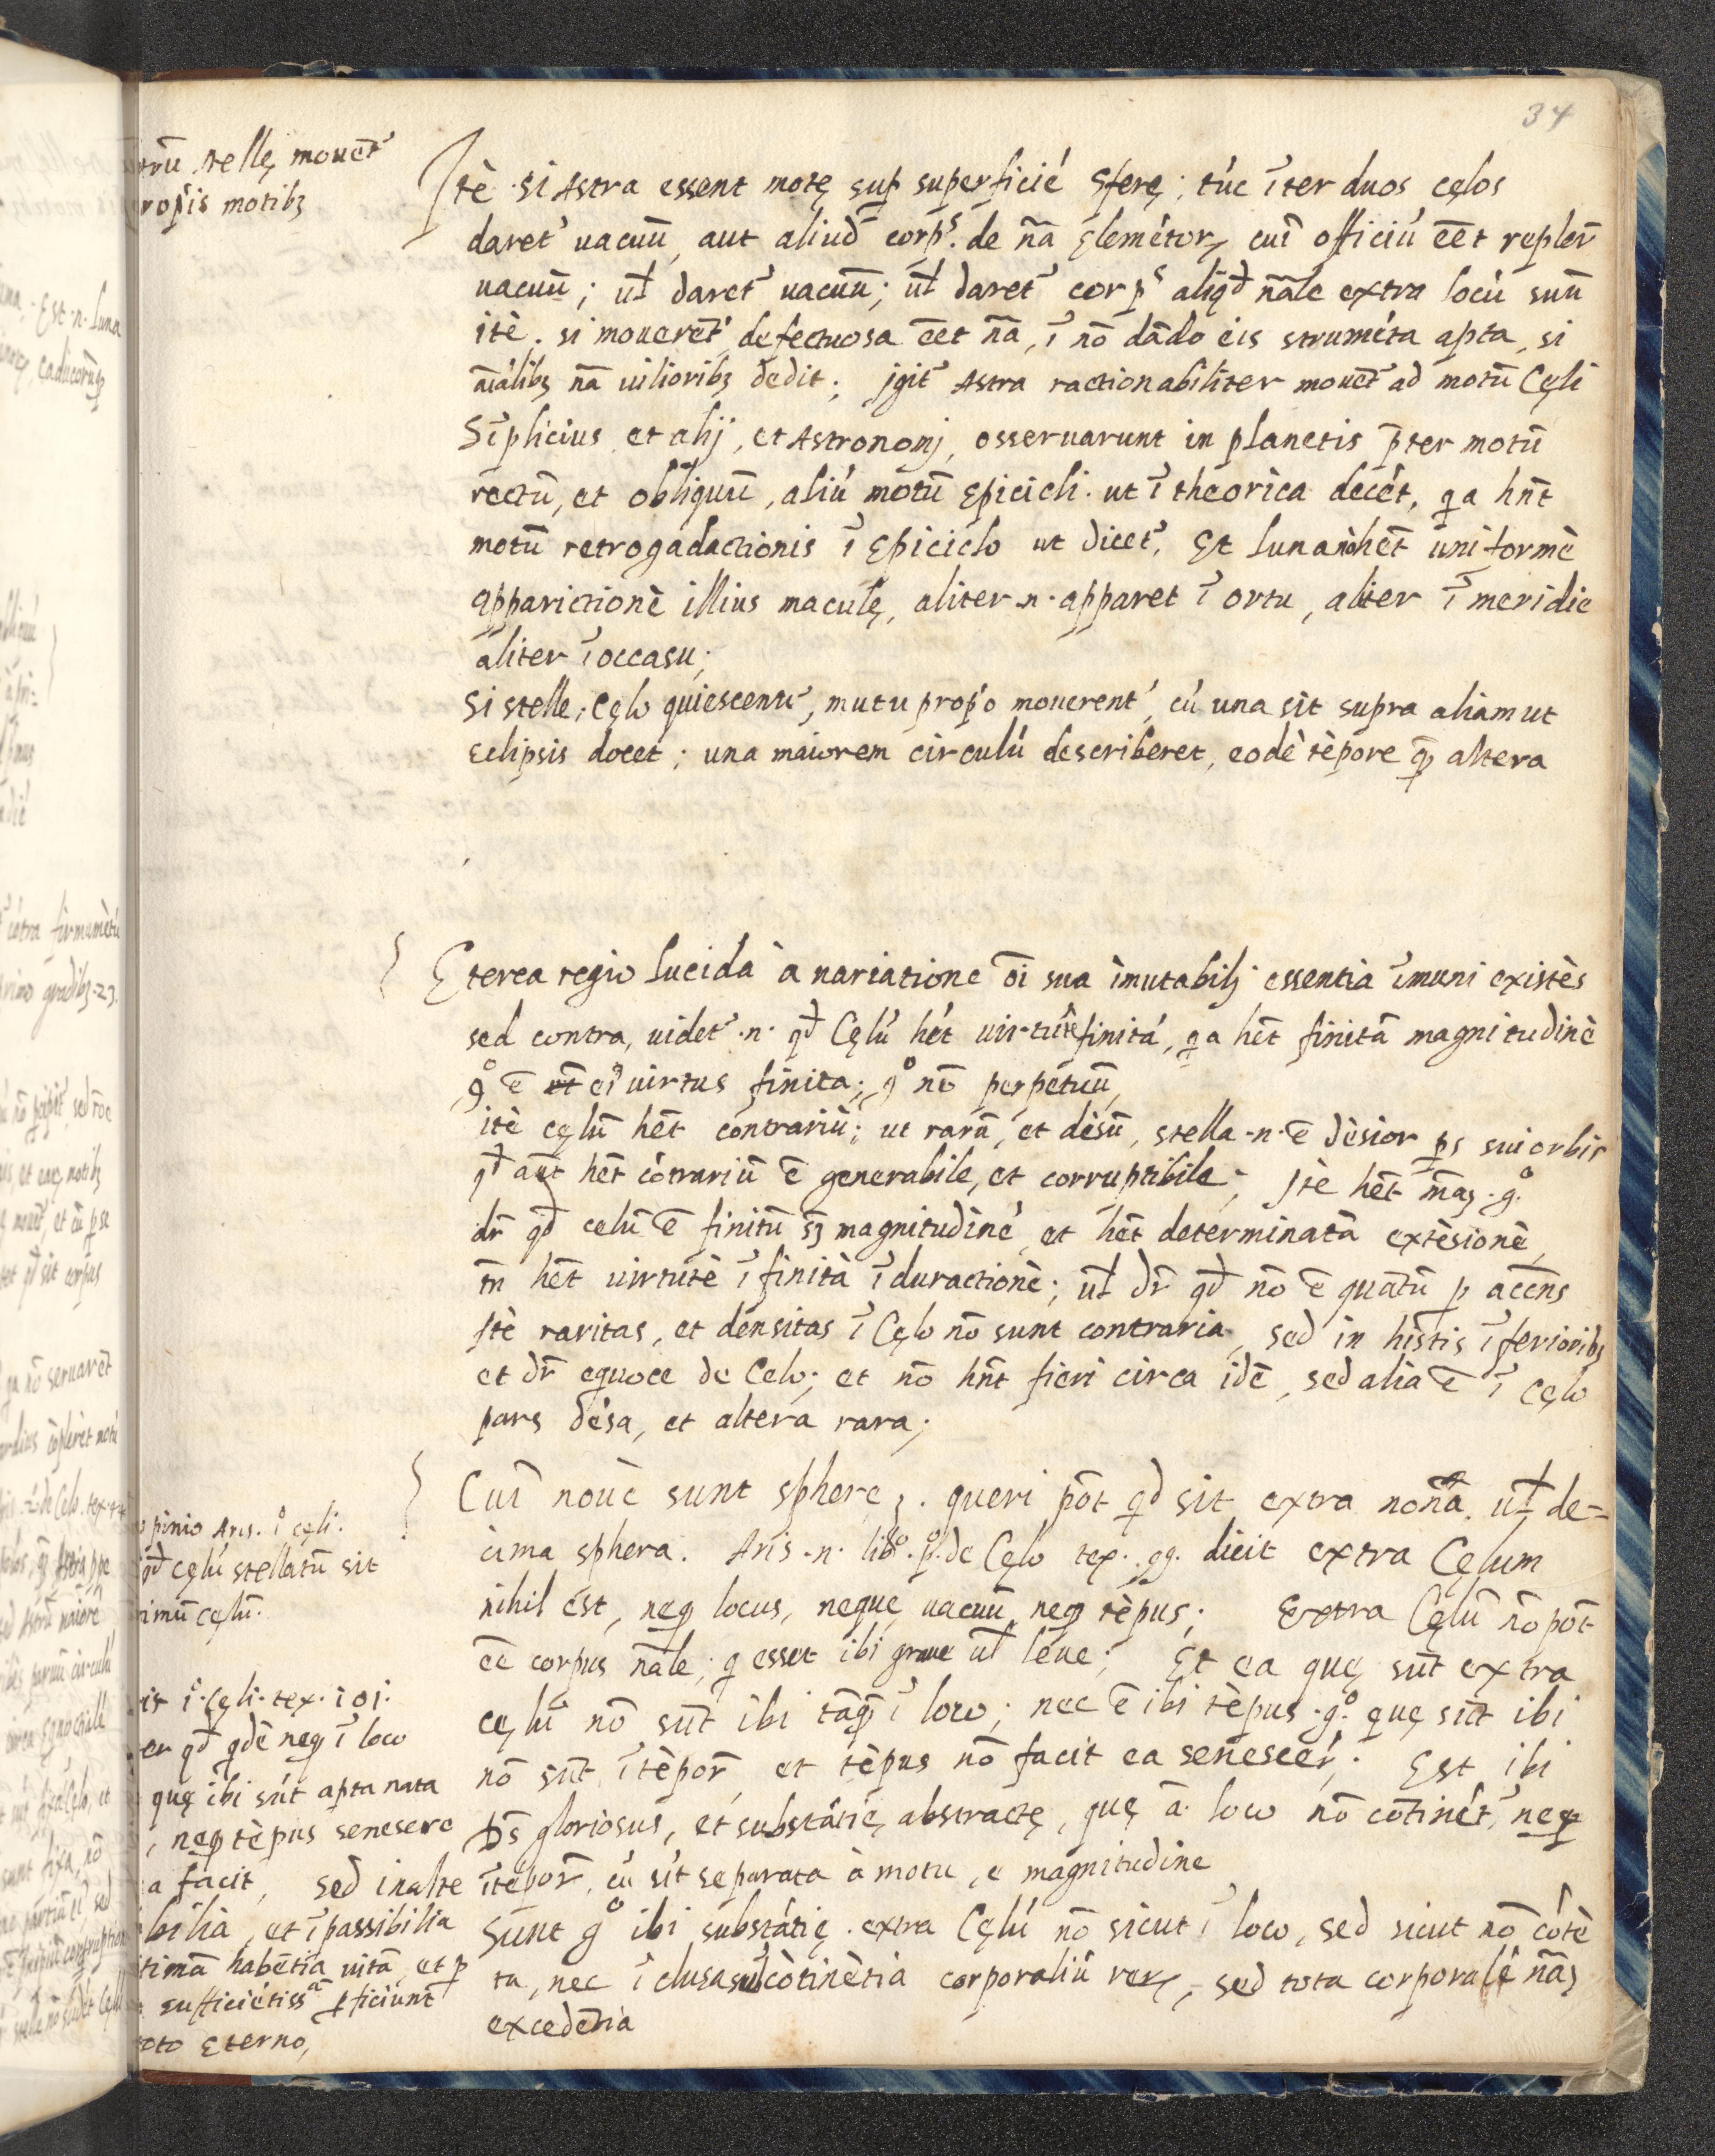 34
stellę mouēt
motibȝ
Itē si Astra essent motę suꝑ superficiē sferę; tūc īter duos cęlos
daret uacuū, aut aliud corpˢ. de nā Elemētorꝝ cui officiū ēēt repler̄
uacuū; ul̄ daret uacuū; ul̄ daret corpˢ aliqd̄ nāle extra locū suū
itē. si mouerēt defectuosa ēēt nā, ī nō dādo eis strumēta apta, si
aīalibȝ nā uilioribȝ dedit; igit Astra ractionabiliter mouēt ad motū Cęli
Sīplicius et alij, et Astronomj, osseruarunt in planetis p̄ter motū
rectū, et obliquū, aliū motū Epicicli. ut ī theorica docēt, qa hn̄t
motū retrogadactionis ī Epiciclo ut dicet. Et luna nō hēt uniformē
apparictionē illius maculę, aliter .n. apparet ī ortu, aliter ī meridie
aliter ī occasu;
Si stellę; Cęlo quiescente, mutu prop̄o mouerent, cū una sit supra aliam ut
Eclipsis docet; una maiorem circulū describeret, eodē tēpore qꝫ altera
Eterea regio lucida à uariatione ōi sua īmutabilj essentia īmuni existēs
sed contra, uidet .n. qd̄ Cęlū hēt uirtutē finitā, qa hēt finitā magnitudinē
gº ē eiˢ uirtus finita; gº nō perpetuū,
itē cęlū hēt contrariū; ut rarū, et dēsū, stella .n. ē dēsior ps sui orbis
qd̄ aūt hēt cōtrariū ē generabile, et corruptibile; Itē hēt māȝ .gº
dr̄ qd̄ celū ē finitū sȝ magnitudinē, et hēt determinatā extēsionē,
tn̄ hēt uirtutē īfinitā ī duractionē; ul̄ dr̄ qd̄ nō ē quātū p accn̄s
Itē raritas, et densitas ī Cęlo nō sunt contraria, sed in histis īferioribȝ
et dr̄ equoce de Celo; et nō hn̄t fieri circa idē, sed alia ē ī Cęlo
pars dēsa, et altera rara;
Cuī nouē sunt spherę. queri pōt qd̄ sit extra nonā, ul̄ de-
cima sphera. Aris .n. libº. pº. de Cęlo tex. 99. dicit extra Cęlum
nihil est, neqꝫ locus, neque uacuū neqꝫ tēpus; Extra Cęlū nō pōt
ēē corpus nāle; q esset ibi graue ul̄ leue; Et ea quę sūt extra
cęlū nō sūt ibi tāqꝫ ī loco; nec ē ibi tēpus .gº. quę sūt ibi
nō sūt ī tēpor̄ et tēpus nō facit ea senescer̄; Est ibi
Ds̄ gloriosus, et substātię abstractę, quę ā loco nō cōtinēt, neqꝫ
ītēpor̄, cū sīt separata à motu, e magnitudine
Sunt gº ibi substātię extra Cęlū nō sicut ī loco, sed sicut nō cōtē
ta, nec īclusa sub cōtinētia corporaliū rerꝝ, sed tota corporalē nāȝ
excedētia
opinio Aris. iº cęli.
qd̄ cęlū stellatū sit
cęlū.
iº. Cęli. tex. 101.
qd̄ qdē neqꝫ ī loco
quę ibi sūt apta nata
, neqꝫ tēpus senescere
facit, sed inalte
bilia, et īpassibilia
habētia uitā, et
sufficiētissᵃ ꝑficiunt
Eterno,